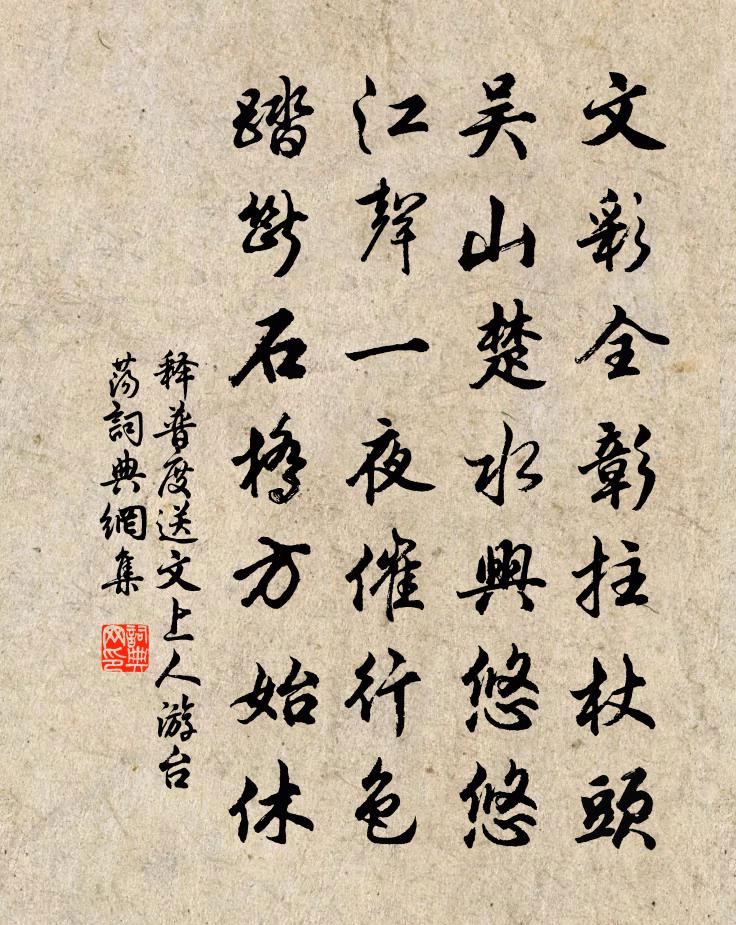 文彩全彰拄杖頭
吳山楚水興悠悠
江聲一夜催行色
踏斷石橋方始休
释普度送文上人游台
蕩詞典網集
詞典
网印